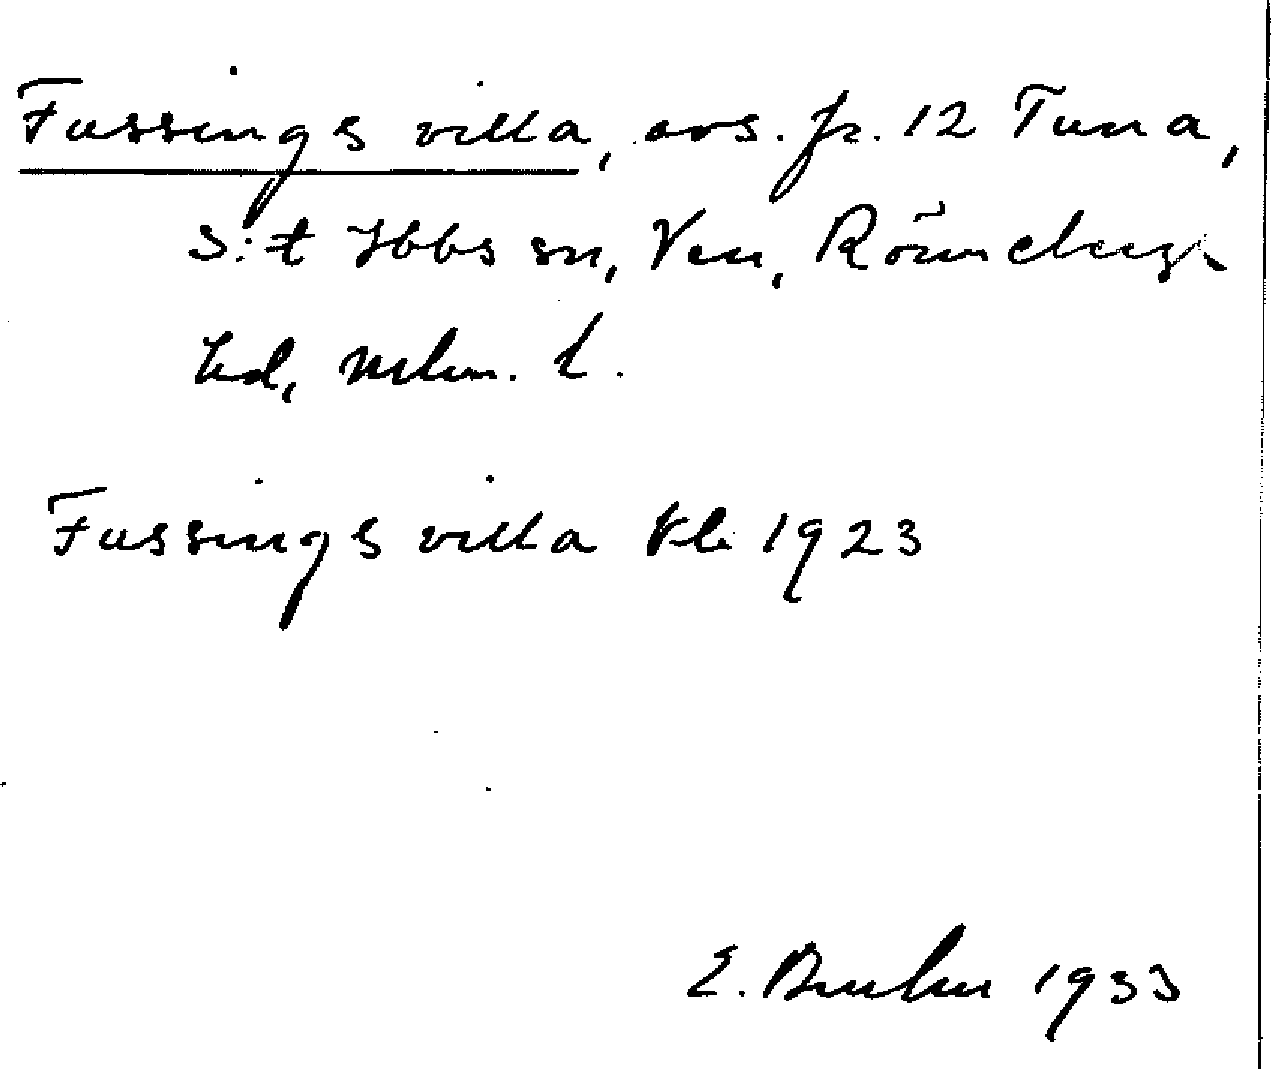 Fussings villa, avs. fr. 12 Tuna,
S:t Ibbs sn, Ven, Rönnebergs
hd, Mlm. l.
Fussings villa Kb 1923
E. 1933